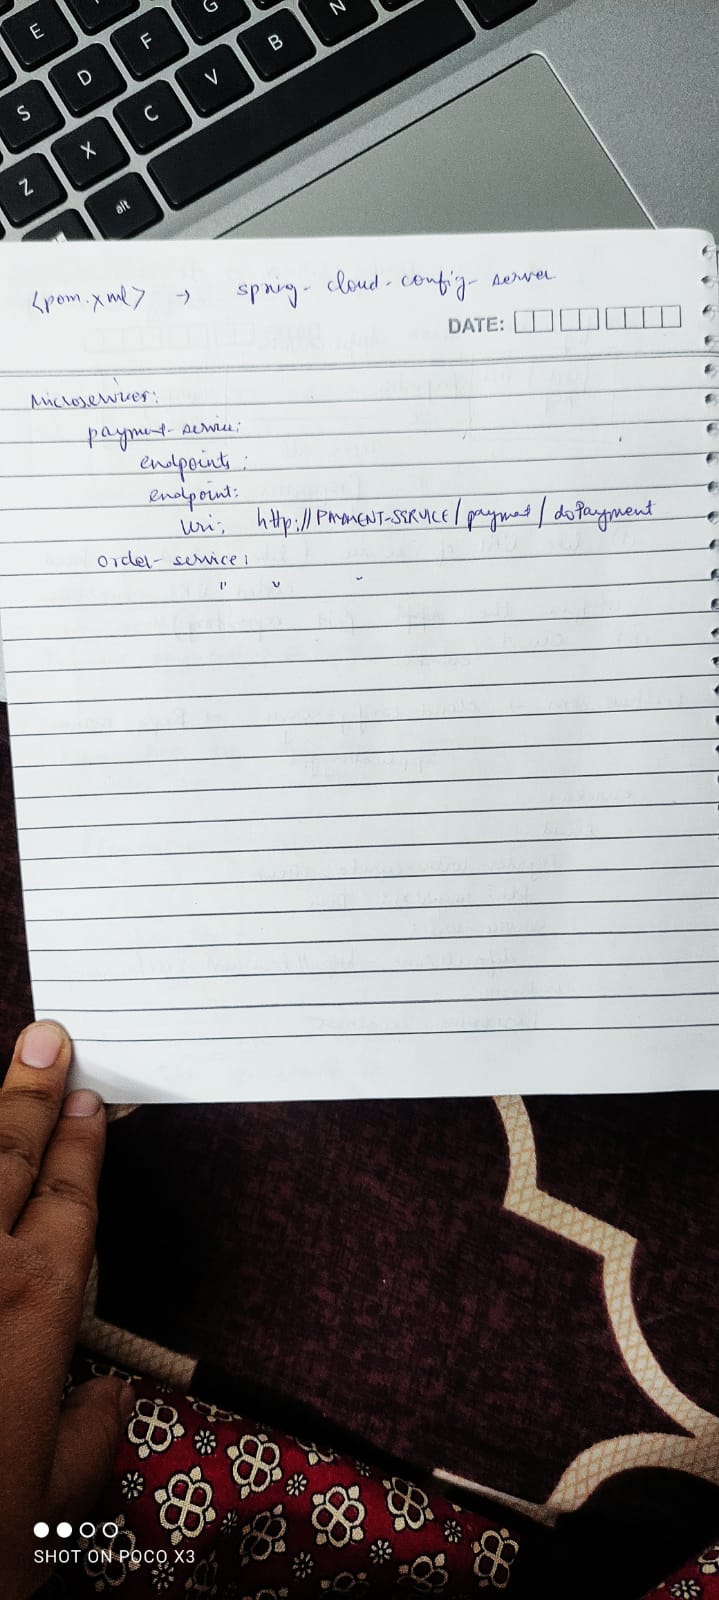 E F G
S D C V B N
Z X
alt
<pom.xml> → spring-cloud-config-server
DATE:
Microservices:
payment-service:
endpoints:
endpoint:
uri: http://PAYMENT-SERVICE/payment/doPayment
order-service:
" " "
SHOT ON POCO X3